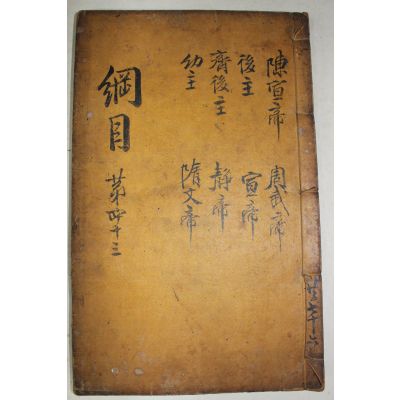 陳宣帝
後主
齊後主
幼主
周武帝
宣帝
静帝
隋文帝
綱目
苐四十三
共七十六